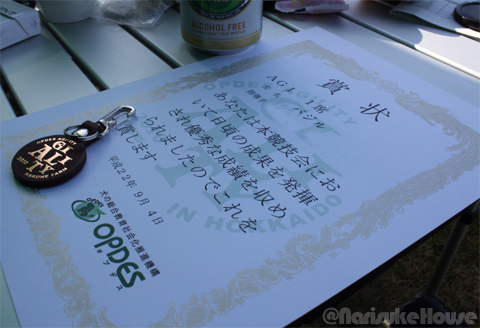 ALCOHOL FREE
賞状
AG1 1席
バジル
あなたは本競技会にお
いて日頃の成果を発揮
され優秀な成績を収め
られましたのでこれを
賞します
平成22年9月4日
犬の総合教育社会化推進機構
OPDES
オプデス
OPDES AGILITY
IN HOKKAIDO
OPDES AGILITY
AGI
ALI
TY
2010
@NarisukeHouse